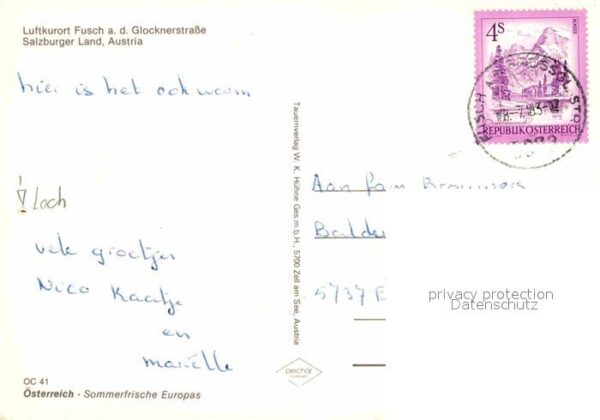 Luftkurort Fusch a. d. Glocknerstraße
Salzburger Land, Austria
hier is het ook warm
! Loch
vele groetjes
Nico Kaatje
en
mariëlle
OC 41
Österreich · Sommerfrische Europas
Tauernverlag W. K. Hühne Ges.m.b.H., 5700 Zell am See, Austria
4S
REPUBLIK ÖSTERREICH
FUSCH
18.-7.83-12
Aan fam
Balde
5737 E
privacy protection
Datenschutz